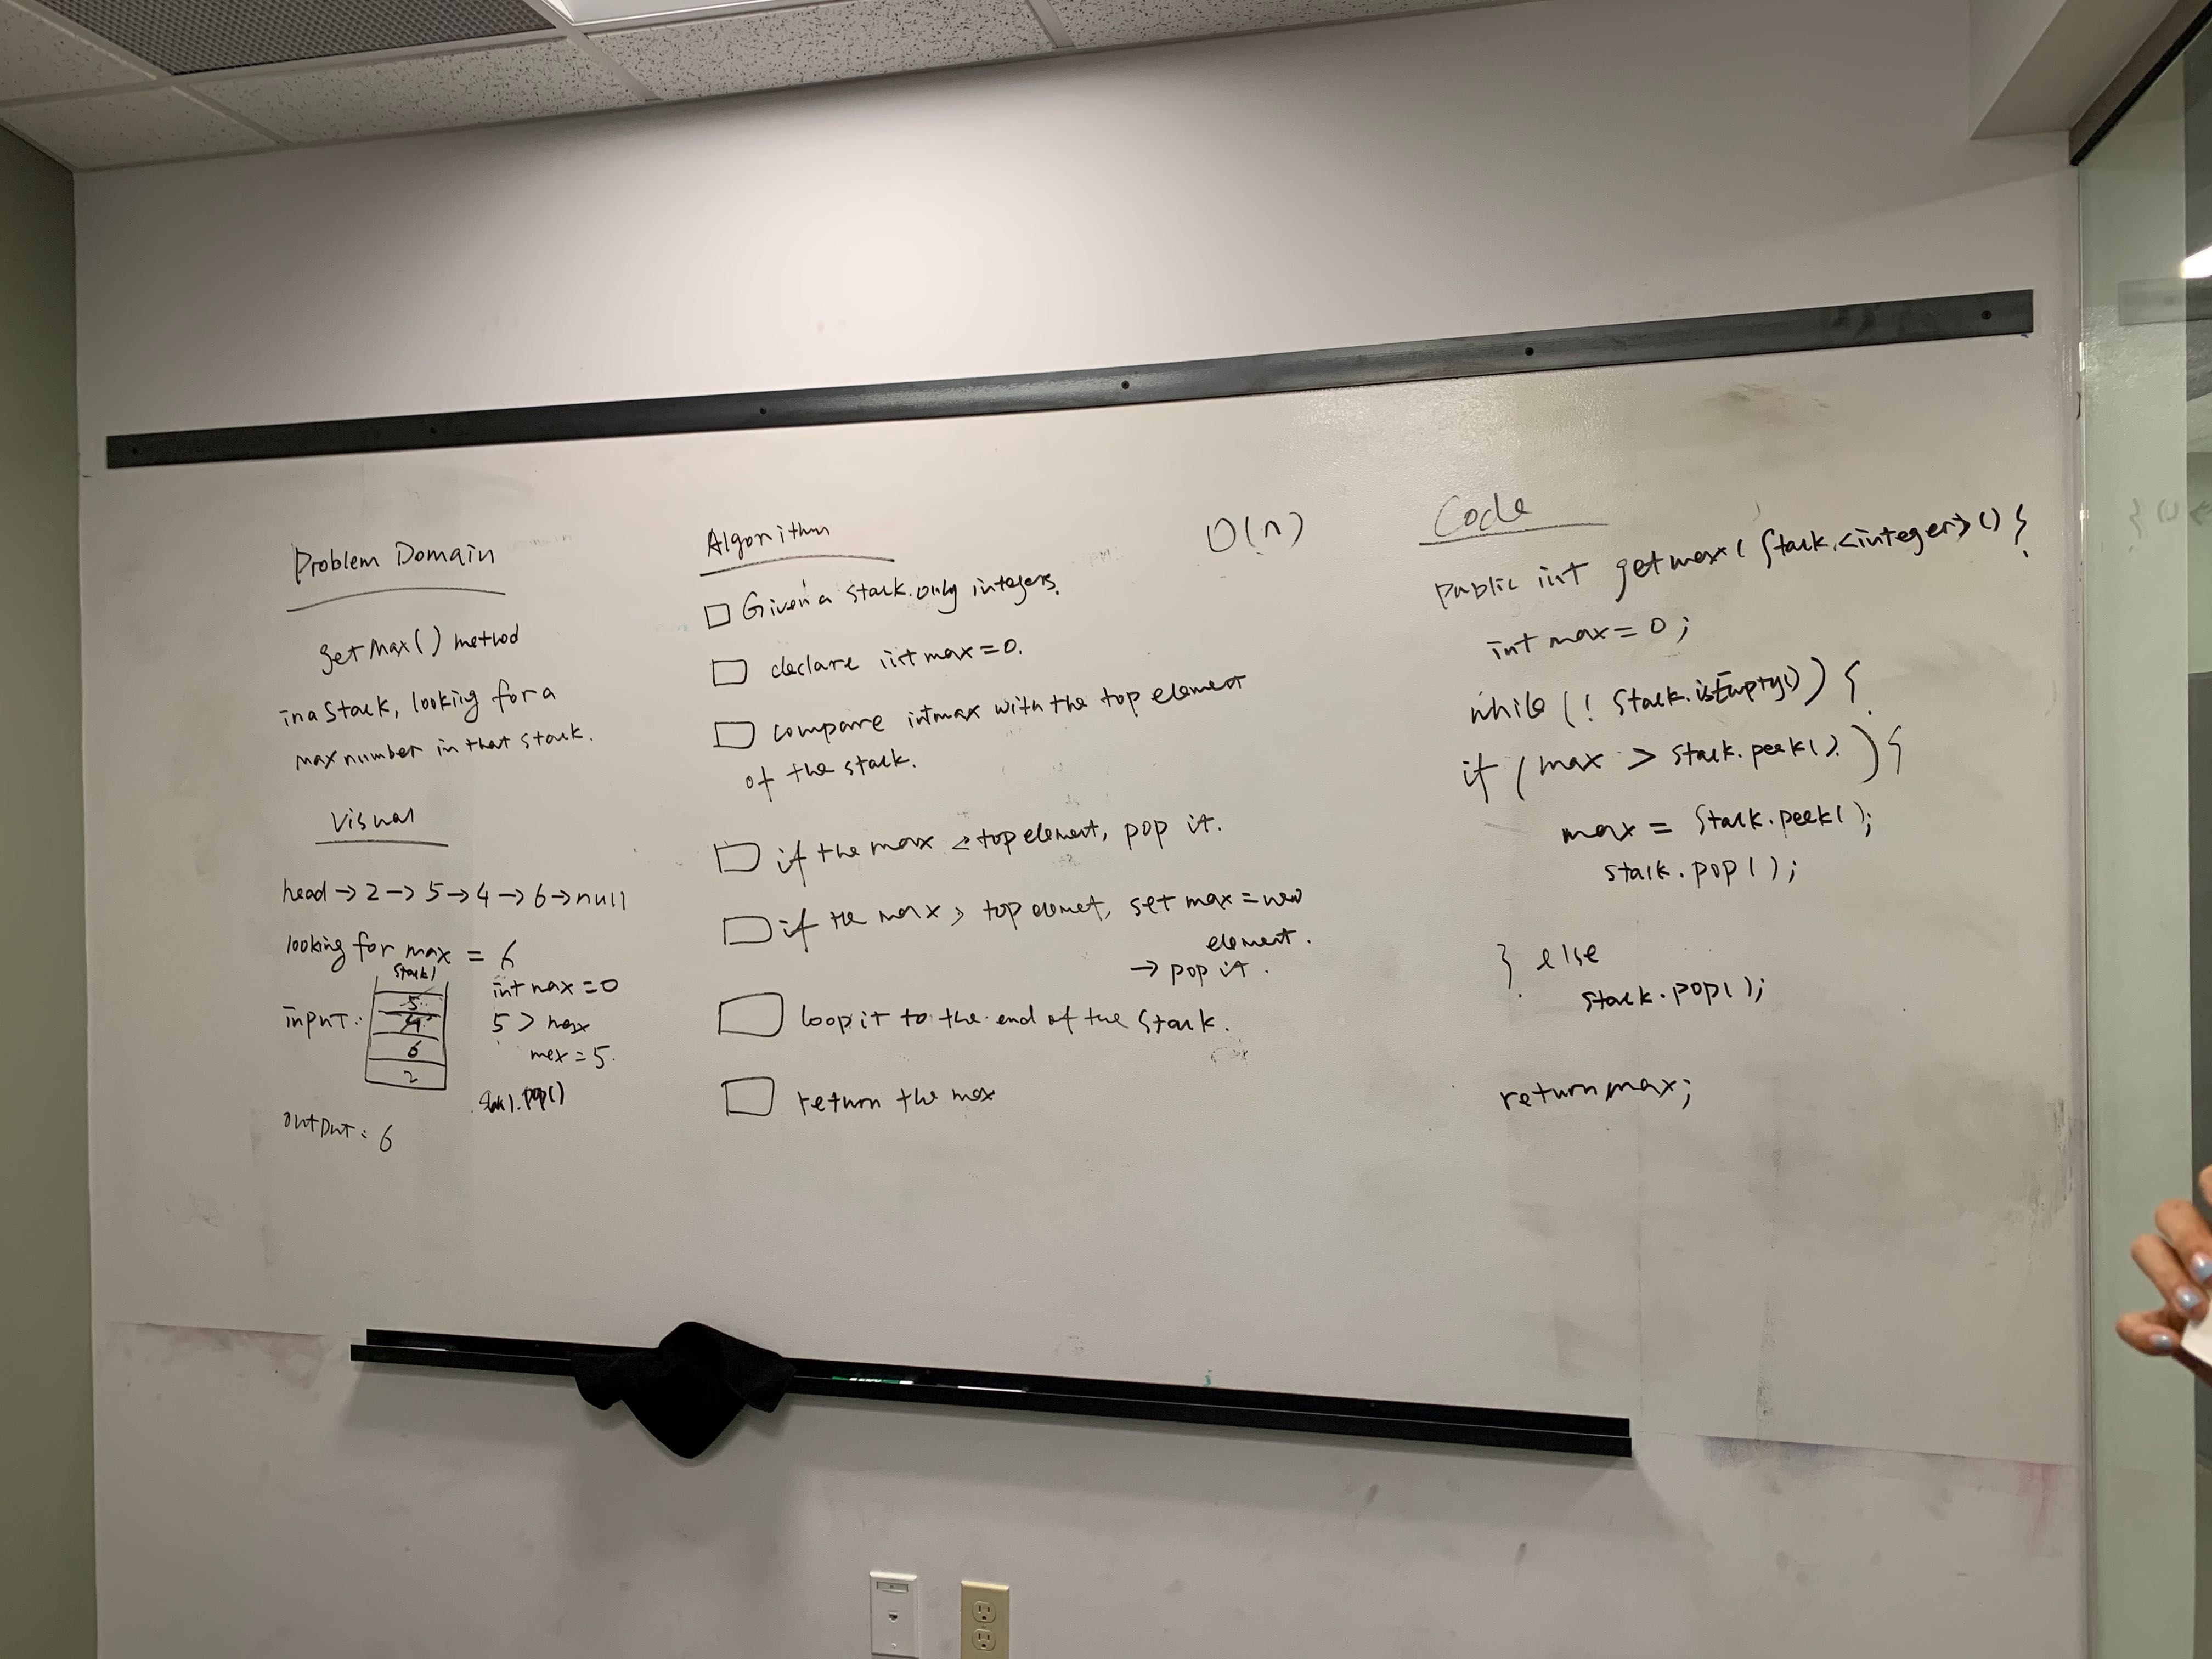 Problem Domain
getMax() method
in a Stack, looking for a
max number in that stack.
Visual
head → 2 → 5 → 4 → 6 → null
looking for max = 6
Stack1
input:
5
4
6
2
int max = 0
5 > max
max = 5.
output: 6
Algorithm
O(n)
Given a stack. only integers.
declare int max = 0.
compare int max with the top element
of the stack.
if the max < top element, pop it.
if the max > top elemet, set max = new
element.
→ pop it.
loop it to the end of the Stack.
return the max
Code
public int getmax( Stack.<integer>() {
int max = 0;
while (! Stack.isEmpty()) {
if (max > stack.peek()) {
max = Stack.peek();
stack.pop();
} else
stack.pop();
return max;